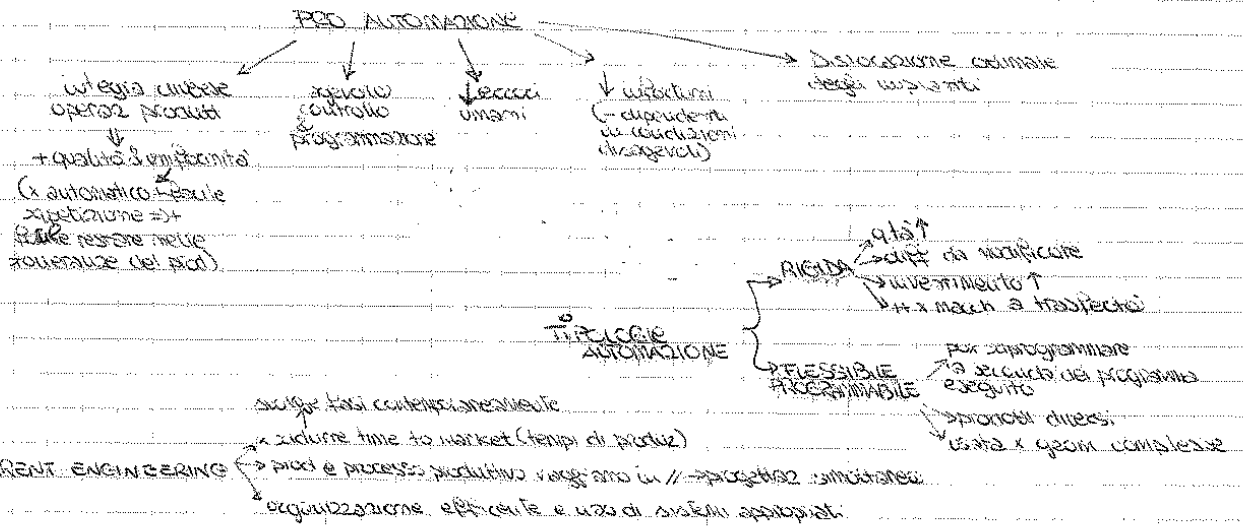 PRO AUTOMAZIONE
integra diverse
operaz produtt
+ qualità & uniformità
(x automatico + facile
ripetizione => +
facile restare nelle
tolleranze del prod)
agevola
controllo
&
programmazione
↓ errori
umani
↓ infortuni
(- dipendenti
in condizioni
disagevoli)
Dislocazione ottimale
degli impianti
TIPOLOGIE
AUTOMAZIONE
RIGIDA
q.tà ↑
diff da modificare
investimento ↑
++ x macch a trasferta
FLESSIBILE
PROGRAMMABILE
può riprogrammare
a seconda del programma
eseguito
prodotti diversi
usata x geom complesse
RENT ENGINEERING
svolge fasi contemporaneamente
x ridurre time to market (tempi di produz)
prod e processo produttivo viaggiano in // → progettaz simultanea
organizzazione efficiente e uso di sistemi appropriati